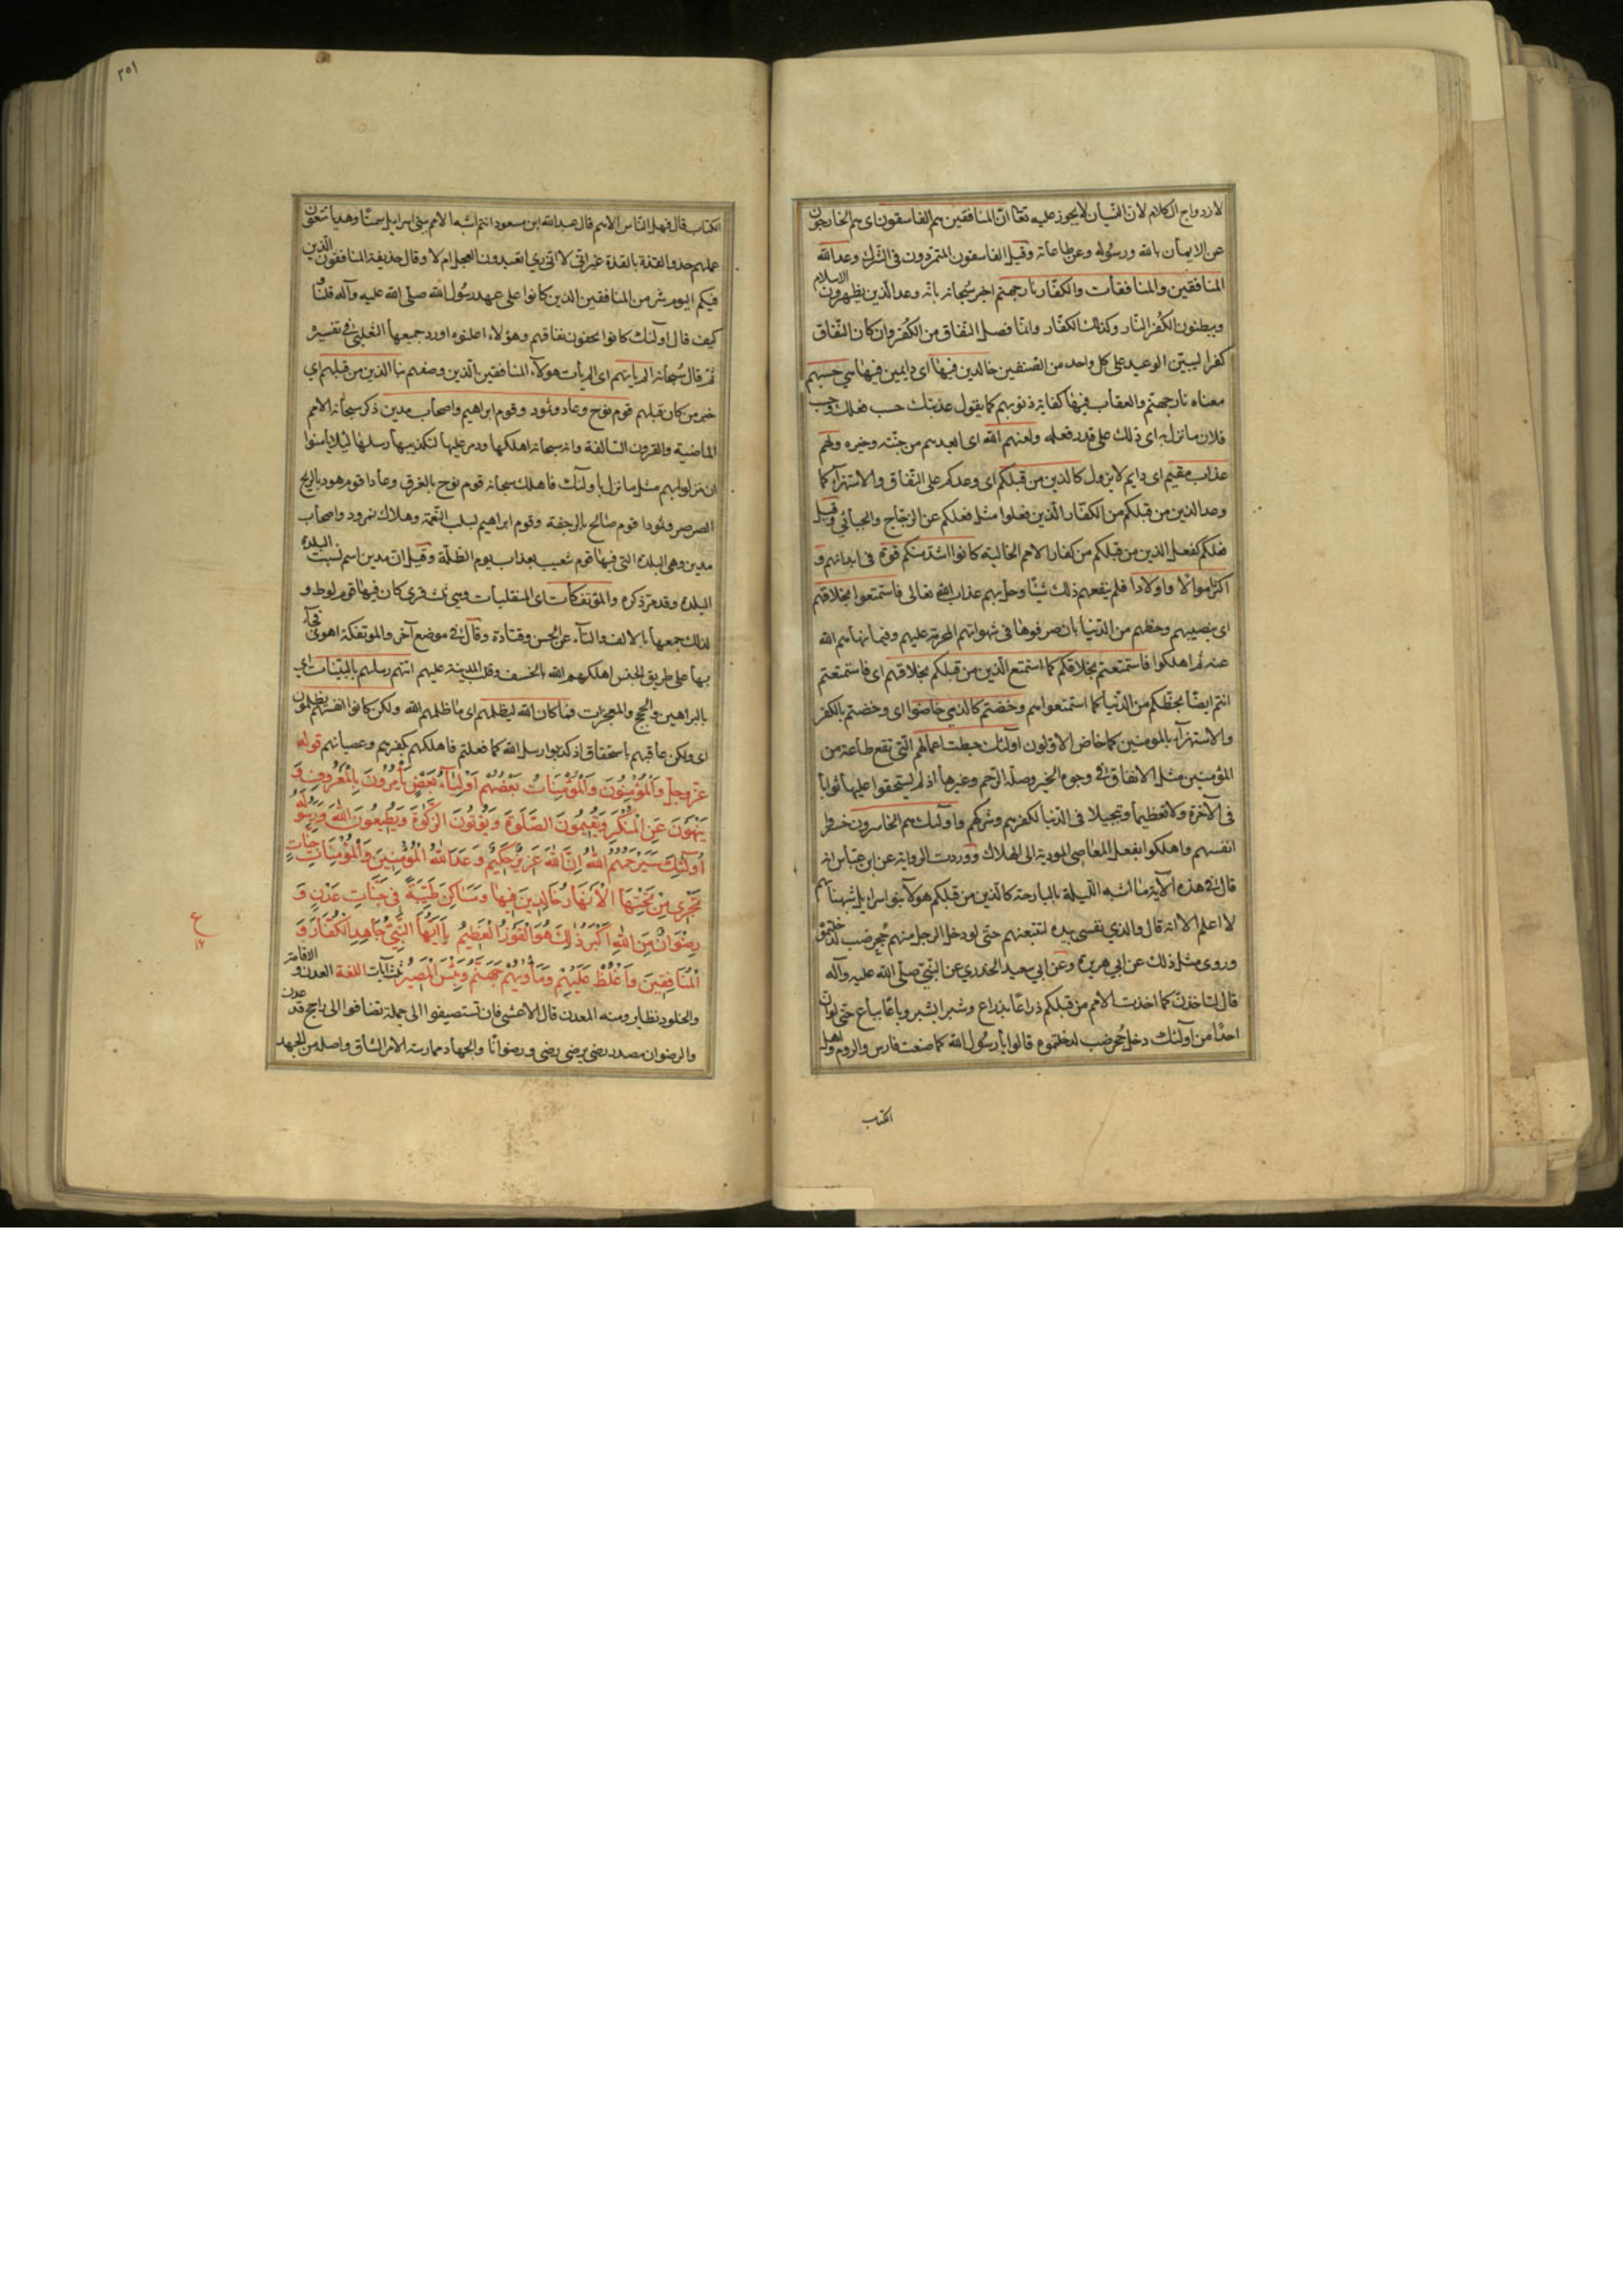 لازدواج الكلام لان النسيان لايجوز عليه تعالى انّ المنافقين هم الفاسقون اى هم الخارجون
عن الايمان بالله ورسوله وعن طاعاته وقيل الفاسقون المتمردون فى الشرك وعد الله
المنافقين والمنافقات والكفّار نار جهنّم اخبر سُبحانه بانه وعد الّذين يظهرون الاسلام
ويبطنون الكُفر النّار وكذلك الكفّار وانّما فصل النّفاق من الكُفر وان كان النّفاق
كفرا ليبيّن الوعيد على كل واحد من الصّنفين خالدين فيها اى دايمين فيها هى حسبهم
معناه نار جهنّم والعقاب فيها كفاية ذنوبهم كما يقول عذبتك حسب فعلك وحسب
فلان ما نزل به اى ذلك على قدر فعله ولعنهم الله اى ابعدهم من جنّته وخيره ولهم
عذاب مقيم اى دايم لايزول كالذين من قبلكم اى وعدكم على النّفاق والاستهزآء كما
وعد الذين من قبلكم من الكفّار الّذين فعلوا مثل فعلكم عن الزجّاج والجبائي وقيل
فعلكم كفعل الذين من قبلكم من كفار الامم الخالية كانوا اشدّ منكم قوة فى ابدانهم و
اكثر اموالا واولادا فلم ينفعهم ذلك شيئا وحل بهم عذاب الله تعالى فاستمتعوا بخلاقهم
اى بنصيبهم وحظهم من الدّنيا بان صرفوها فى شهواتهم المحرمة عليهم وفيما نهاهم الله
عنه ثم اهلكوا فاستمتعتم بخلاقكم كما استمتع الّذين من قبلكم بخلاقهم اى فاستمتعتم
انتم ايضًا بحظّكم من الدّنيا كما استمتعوا هم وخضتم كالذى خاضوا اى وخضتم بالكفر
والاستهزآء بالمومنين كما خاض الاولون اولئك حبطت اعمالهم الّتى تقع طاعة من
المؤمنين مثل الانفاق فى وجوه الخير وصلة الرّحم وغيرها اذ لم يستحقوا عليها ثوابا
فى الآخرة ولا تعظيما وتبجيلا فى الدّنيا لكفرهم وشركهم واولئك هم الخاسرون خسروا
انفسهم واهلكوا بفعل المعاصى المودية الى الهلاك ووردت الرواية عن ابن عبّاس انه
قال فى هذه الآية ما اشبه اللّيلة بالبارحة كالّذين من قبلكم هولآء بنو اسراييل شبهنا بهم
لا اعلم الا انه قال والذي نفسى بيده لتتبعنهم حتى لو دخل الرجل منهم جُحر ضب لدخلتموه
وروى مثل ذلك عن ابي هريرة وعن ابي سعيد الخدري عن النّبيّ صلّى الله عليه وآله
قال لتاخذنّ كما اخذت الامم من قبلكم ذراعًا بذراع وشبرا بشبر وباعًا بباع حتى لو ان
احدًا من اولئك دخل جُحر ضب لدخلتموه قالوا يا رسُول الله كما صنعت فارس والروم واهل
الكتاب
٢٥١
الكتاب قال فهل النّاس الا هم قال عبد الله ابن مسعود انتم اشبه الامم ببني اسراييل سمتًا وهديا تتبعون
عملهم حذو القذة بالقذة غير انّى لا ادرى اتعبدون العجل ام لا وقال حذيفة المنافقون الّذين
فيكم اليوم شر من المنافقين الذين كانوا على عهد رسُول الله صلّى الله عليه وآله قلنا و
كيف قال اولئك كانوا يخفون نفاقهم وهؤلاء اعلنوه اورد جميعها الثعلبىّ فى تفسيره و
ثم قال سُبحانه الم ياتهم اى الم يأت هولآء المنافقين الّذين وصفهم نبا الذين من قبلهم اى
خبر من كان قبلهم قوم نوح وعاد وثمود وقوم ابراهيم واصحاب مدين ذكر سبحانه الامم
الماضية والقرون السّالفة وانه سبحانه اهلكها ودمر عليها لتكذيبها رسلها ليلا يأمنوا
ان ينزل بهم مثل ما نزل باولئك فاهلك سبحانه قوم نوح بالغرق وعادا قوم هود بالريح
الصرصر وثمودا قوم صالح بالرجفة وقوم ابراهيم بسلب النّعمة وهلاك نمرود واصحاب
مدين وهى البلدة التى فيها قوم شعيب بعذاب يوم الظلّة وقيل انّ مدين اسم نسبت البلدة
البلدة وقد مرّ ذكره والمؤتفكات اى المنقلبات وهى ثلث قرى كان فيها قوم لوط و
لذلك جمعها بالالف والتآء عن الحسن وقتادة وقال فى موضع آخر والموتفكة اهوى فجآء
بها على طريق الجنس اهلكهم الله بالخسف وقلب المدينة عليهم اتتهم رسلهم بالبيّنات اى
بالبراهين والحجج والمعجزات فما كان الله ليظلمهم اى ما ظلمهم الله ولكن كانوا انفسهم يظلمون
اى ولكن عاقبهم باستحقاق اذ كذبوا رسل الله كما فعلتم فاهلكهم بكفرهم وعصيانهم قوله
عزّ وجلّ وَالْمُؤْمِنُونَ وَالْمُؤْمِنَاتُ بَعْضُهُمْ اَوْلِيَآءُ بَعْضٍ يَأْمُرُونَ بِالْمَعْرُوفِ وَ
يَنْهَوْنَ عَنِ الْمُنْكَرِ وَيُقِيمُونَ الصَّلَوةَ وَيُؤْتُونَ الزَّكَوةَ وَيُطِيعُونَ اللهَ وَرَسُولَهُ
اُولٰئِكَ سَيَرْحَمُهُمُ اللهُ اِنَّ اللهَ عَزِيزٌ حَكِيمٌ وَعَدَ اللهُ الْمُؤْمِنِينَ وَالْمُؤْمِنَاتِ جَنَّاتٍ
تَجْرِى مِنْ تَحْتِهَا الْاَنْهَارُ خَالِدِينَ فِيهَا وَمَسَاكِنَ طَيِّبَةً فِى جَنَّاتِ عَدْنٍ وَ
رِضْوَانٌ مِنَ اللهِ اَكْبَرُ ذٰلِكَ هُوَ الْفَوْزُ الْعَظِيمُ يَا اَيُّهَا النَّبِىُّ جَاهِدِ الْكُفَّارَ وَ
الْمُنَافِقِينَ وَاغْلُظْ عَلَيْهِمْ وَمَأْوٰيهُمْ جَهَنَّمُ وَبِئْسَ الْمَصِيرُ ثلث آيات اللغة العدن والاقامة
والخلود نظاير ومنه المعدن قال الاعشى فان تستضيفوا الى حلمه تضافوا الى راجح قد عدن
والرضوان مصدر رضى يرضى رضى ورضوانا والجهاد ممارسة الامر الشاق واصله من الجهد
ع
١٦